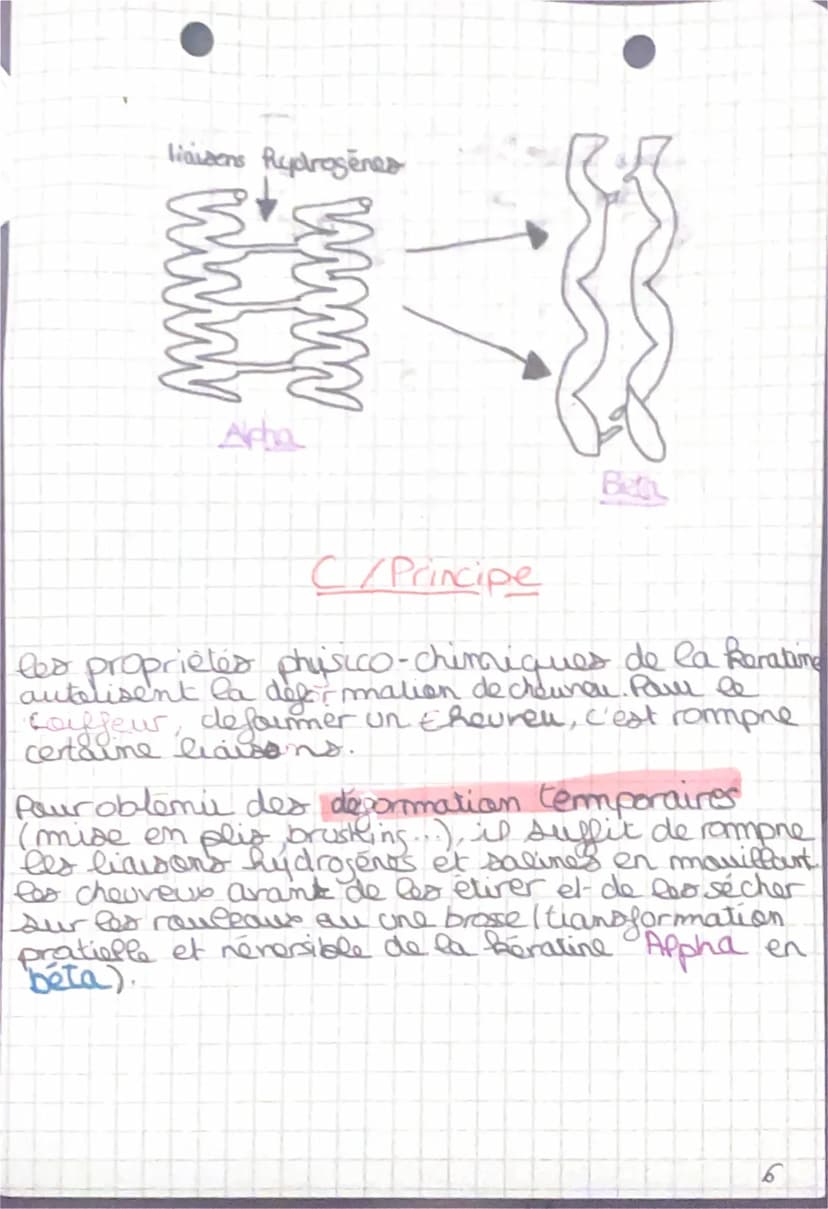 liaisons hydrogènes
Alpha
Beta
C / Principe
les propriétés physico-chimiques de la keratine
autolisent la déformation de cheuveu. Pour le
coiffeur, deformer un cheuveu, c'est rompre
certaine liaisons.
Pour obtenir des déformation temporaires
(mise en plis, brushing...), il suffit de rompre
les liaisons hydrogènes et salines en mouillant
les cheuveux avant de les étirer et de les sécher
sur les rouleaux ou une brosse (transformation
pratielle et réversible de la kératine Alpha en
béta).
6